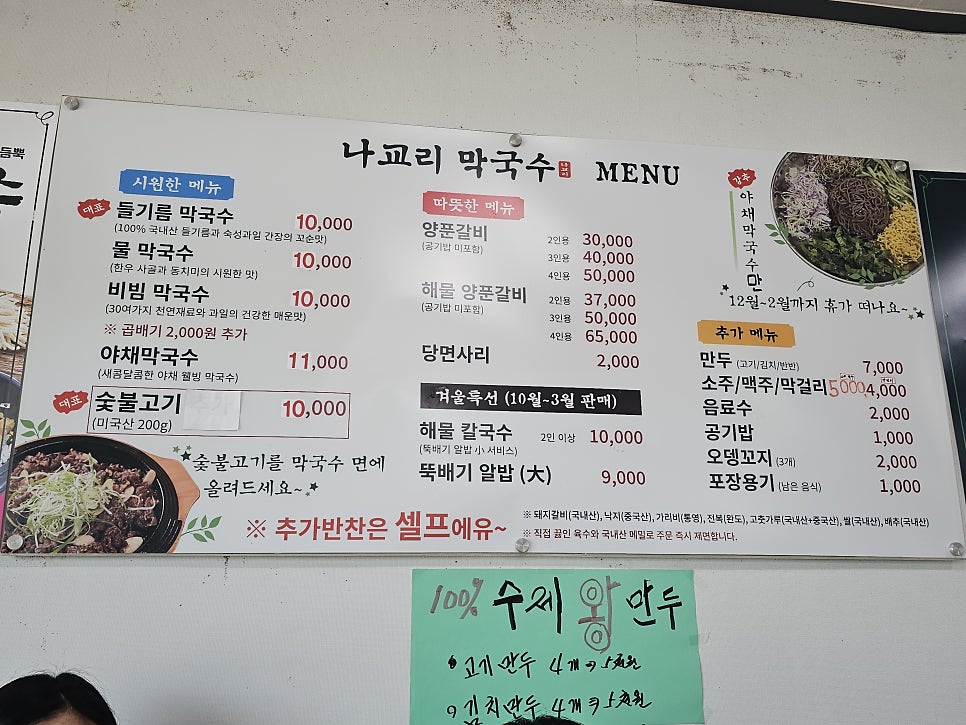 듬뿍
나교리 막국수 MENU
시원한 메뉴
대표 들기름 막국수 10,000
(100% 국내산 들기름과 숙성과일 간장의 꼬순맛)
물 막국수 10,000
(한우 사골과 동치미의 시원한 맛)
비빔 막국수 10,000
(30여가지 천연재료와 과일의 건강한 매운맛)
※ 곱배기 2,000원 추가
야채막국수 11,000
(새콤달콤한 야채 웰빙 막국수)
대표 숯불고기 추가 10,000
(미국산 200g)
숯불고기를 막국수 면에
올려드세요~
따뜻한 메뉴
양푼갈비 2인용 30,000
(공기밥 미포함) 3인용 40,000
4인용 50,000
해물 양푼갈비 2인용 37,000
(공기밥 미포함) 3인용 50,000
4인용 65,000
당면사리 2,000
겨울특선 (10월~3월 판매)
해물 칼국수 2인 이상 10,000
(뚝배기 알밥 小 서비스)
뚝배기 알밥 (大) 9,000
강추
야채막국수만
12월~2월까지 휴가 떠나요~
추가 메뉴
만두 (고기/김치/반반) 7,000
소주/맥주/막걸리 5000 4,000
음료수 2,000
공기밥 1,000
오뎅꼬지 (3개) 2,000
포장용기 (남은 음식) 1,000
※ 추가반찬은 셀프에유~
※ 돼지갈비(국내산), 낙지(중국산), 가리비(통영), 전복(완도), 고춧가루(국내산+중국산), 쌀(국내산), 배추(국내산)
※ 직접 끓인 육수와 국내산 메밀로 주문 즉시 제면합니다.
100% 수제 왕만두
고기만두 4개 → 5천원
김치만두 4개 → 5천원